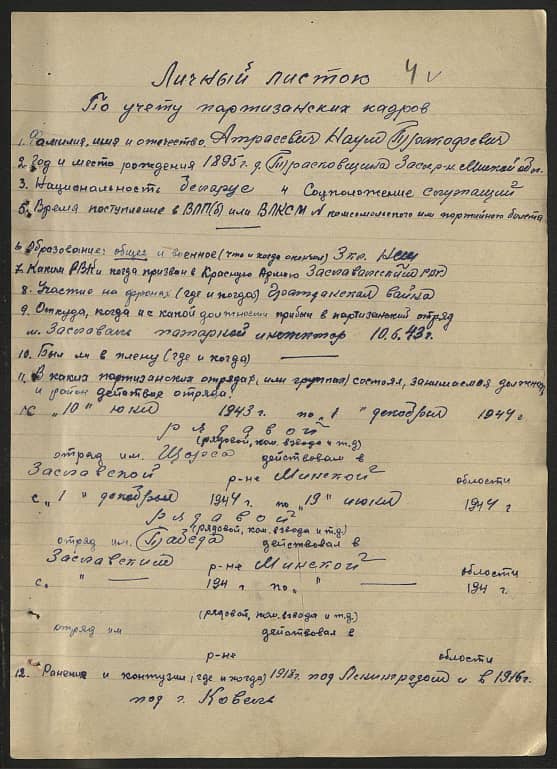 Личный листою 4
По учету партизанских кадров
1. Фамилия, имя и отчество. Атрасевич Наум Пракофевич
2. Год и место рождения 1895 г. д. Прасковщина Засл. р-н Минской обл.
3. Национальность беларус 4 Соцположение служащий
5. Время поступления в ВКП(б) или ВЛКСМ N комсомольского или партийного билета
6. Образование: общее и военное (что и когда окончил) 3 кл.
7. Каким РВК и когда призван в Красную Армию Заславский РВК
8. Участие на фронтах (где и когда) Гражданская вайна
9. Откуда, когда и с какой должности прибыл в партизанский отряд
м. Заславль пажарной инспектор 10.6.43 г.
10. Был ли в плену (где и когда)
11. В каких партизанских отрядах, или группах) состоял, занимаемая должн.
и район действия отряда.
с „10" июня 1943 г. по „1" декабря 1944 г.
рядавой
(рядовой, ком. взвода и т.д)
отряд им. Щорса действовал в
Заславской р-не Минской области
с „1" декабрый 1944 г. по „19" июня 1944 г
рядавой
(рядовой, ком. взвода и т.д.)
отряд им. Пабеда действовал в
Заславским р-не Минской области
с. " 194 г по „ " 194 г.
(рядовой, ком. взвода и т.д.)
отряд им действовал в
р-не области
12. Ранение и контузии (где и когда) 1918 г. под Ленинградом и в 1916 г.
под г. Ковель